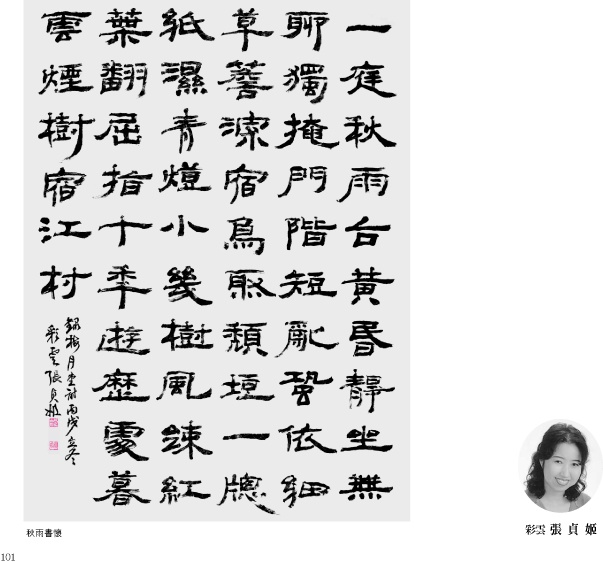 一庭秋雨台黃昏靜坐無
聊獨掩門階短亂蛩依細
草簷深宿鳥聚頹垣一牕
紙濕青燈小幾樹風疎紅
葉翻屈指十年遊歷處暮
雲煙樹宿江村
錄梅月堂詩丙戌立冬
彩雲張貞姬
秋雨書懷
彩雲 張貞姬
101